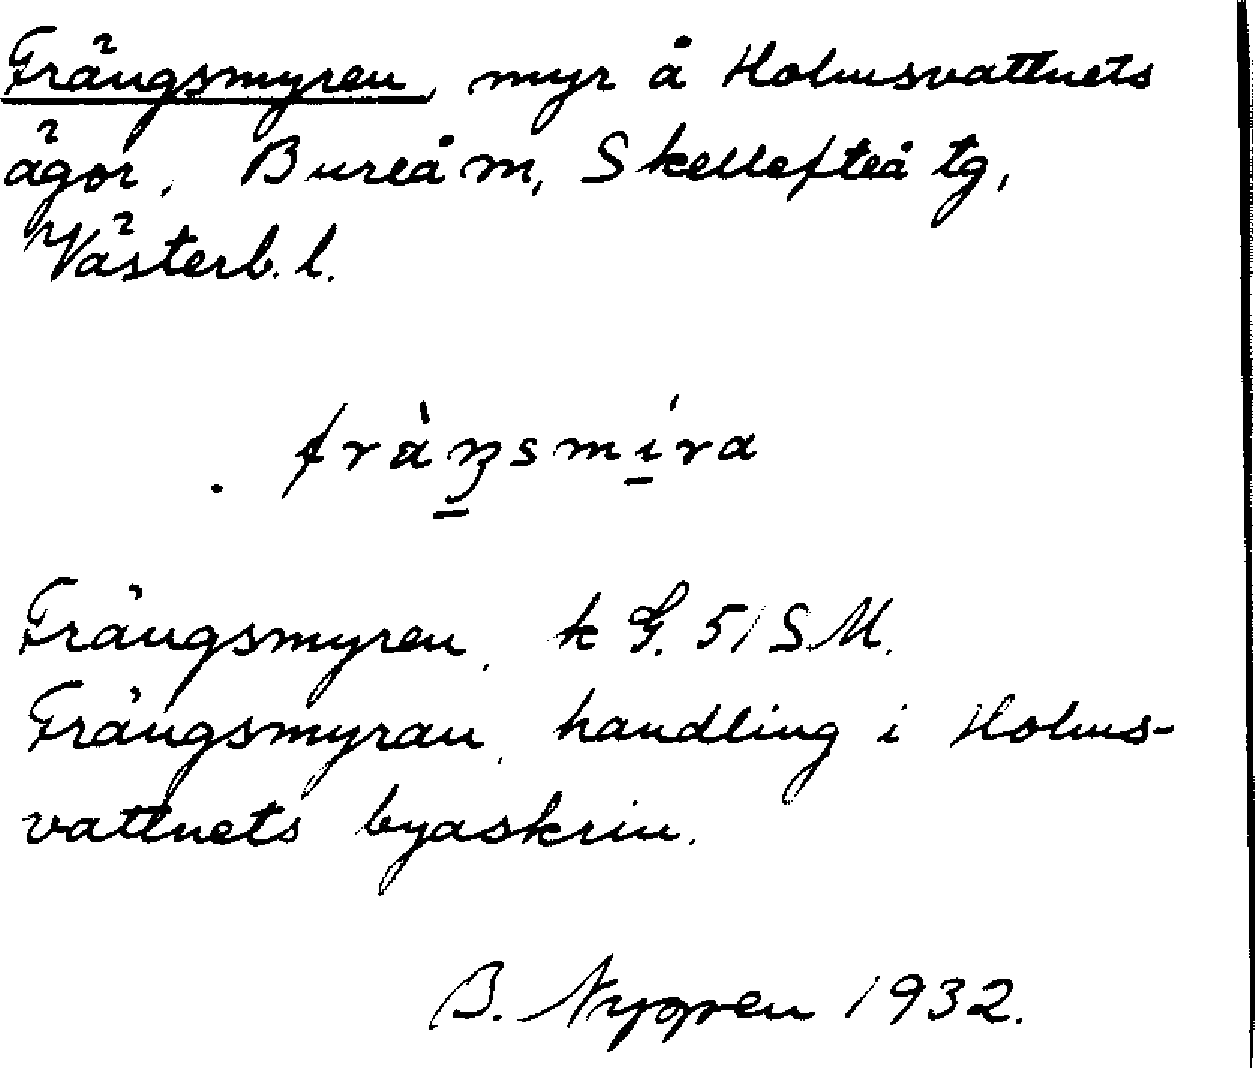 Frängsmyren, myr å Holmsvattnets
ägor, Bureå m, Skellefteå tg,
Västerb. l.
fràŋsmíra
Frängsmyren. k G. 51 SM.
Frängsmyran, handling i Holms-
vattnets byaskrin.
B. Nygren 1932.